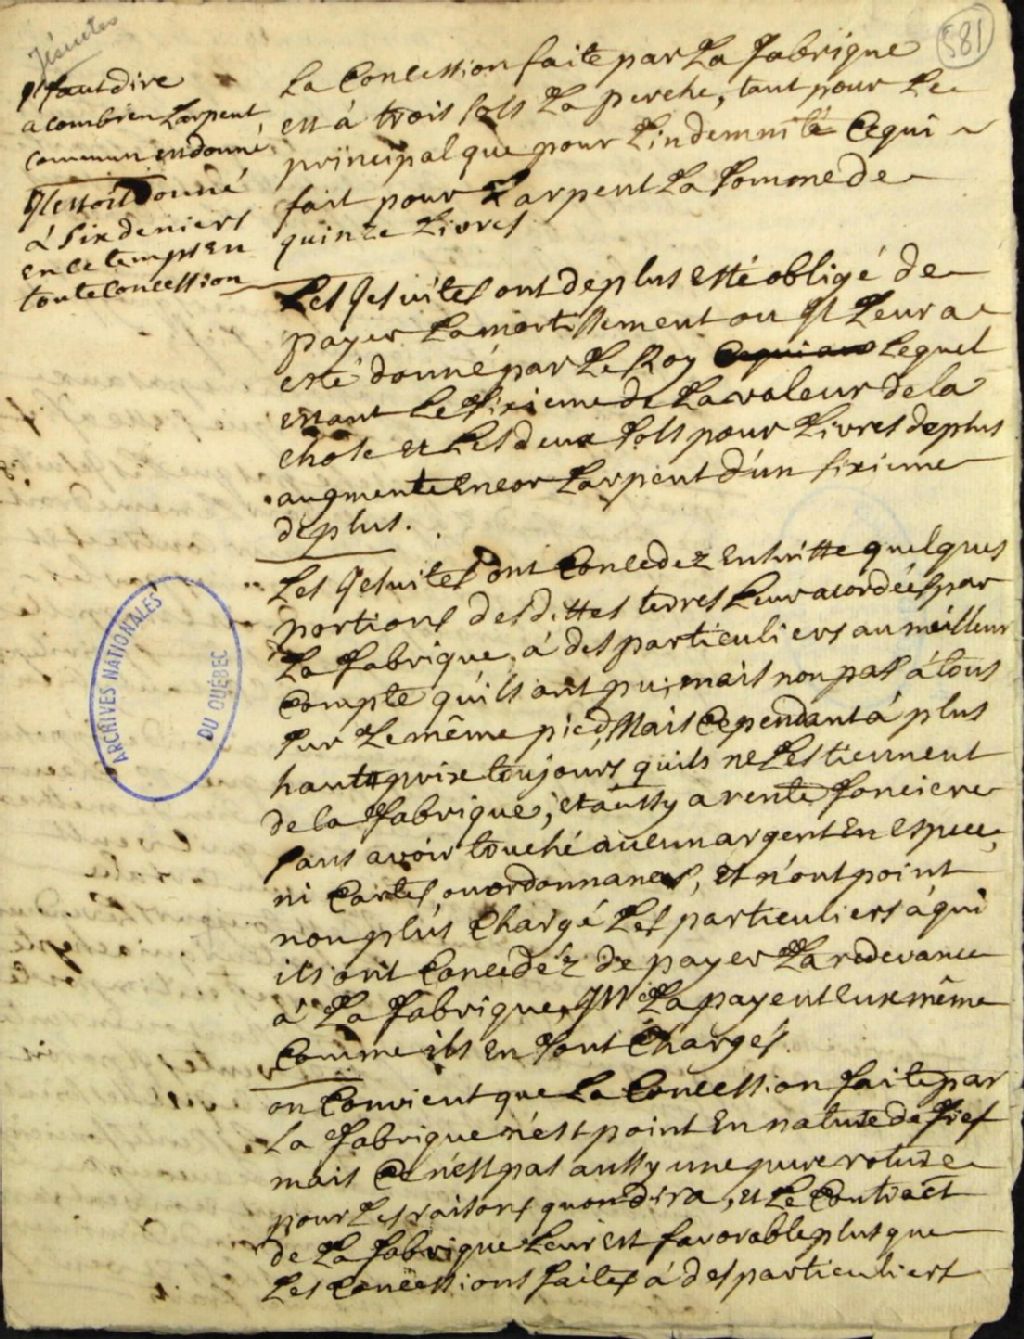 Jésuites
581
Il faut dire
a combien Larpent
commun est donné,
Il estoit donné
à six deniers
en ce temps En
toute Concession
La Concession faite par La fabrique
est à trois sols La perche, tant pour Le
principal que pour L'indemnité Cequi
fait pour Larpent La somme de
quinze Livres
Les Jesuites ont deplus esté obligé de
payer Lamortissement ou Il Leur a
esté donné par Le Roy Lequel
estant Le sixieme de La valeur de la
chose et Les deux sols pour Livres deplus
augmente Encor Larpent d'un sixieme
deplus.
Les Jesuites ont Concedez Ensuitte quelques
portions desdittes terres Leur acordées par
La fabrique, à des particuliers au meilleur
Compte qu'ils ont pu, mais non pas à tous
sur Le même pied, Mais Cependant à plus
haut prix toujours qu'ils ne Les tiennent
de la fabrique, et aussy a rente fonciere
sans avoir touché aucun argent En espece,
ni Cartes, ou ordonnances, et n'ont point
non plus Chargé Les particuliers à qui
ils ont Concedéz de payer La redevance
à La fabrique, Ils La payent Eux même
Comme ils En sont Chargés
on Convient que La Concession faite par
La fabrique n'est point En nature de fief
mais Ce n'est pas aussy une pure roture
pour Les raisons qu'on dira, et Le Contract
de La fabrique Leur est favorable plus que
Les Concessions faites à des particuliers
ARCHIVES NATIONALES
DU QUÉBEC